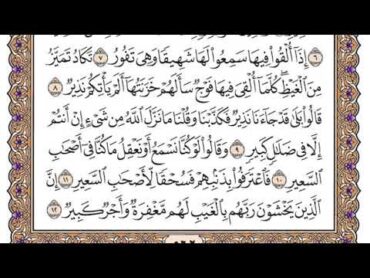 إِذَآ أُلْقُوا۟ فِيهَا سَمِعُوا۟ لَهَا شَهِيقًا وَهِىَ تَفُورُ ٧ تَكَادُ تَمَيَّزُ
مِنَ ٱلْغَيْظِ ۖ كُلَّمَآ أُلْقِىَ فِيهَا فَوْجٌ سَأَلَهُمْ خَزَنَتُهَآ أَلَمْ يَأْتِكُمْ نَذِيرٌ ٨
قَالُوا۟ بَلَىٰ قَدْ جَآءَنَا نَذِيرٌ فَكَذَّبْنَا وَقُلْنَا مَا نَزَّلَ ٱللَّهُ مِن شَىْءٍ إِنْ أَنتُمْ
إِلَّا فِى ضَلَٰلٍ كَبِيرٍ ٩ وَقَالُوا۟ لَوْ كُنَّا نَسْمَعُ أَوْ نَعْقِلُ مَا كُنَّا فِىٓ أَصْحَٰبِ
ٱلسَّعِيرِ ١٠ فَٱعْتَرَفُوا۟ بِذَنۢبِهِمْ فَسُحْقًا لِّأَصْحَٰبِ ٱلسَّعِيرِ ١١ إِنَّ
ٱلَّذِينَ يَخْشَوْنَ رَبَّهُم بِٱلْغَيْبِ لَهُم مَّغْفِرَةٌ وَأَجْرٌ كَبِيرٌ ١٢